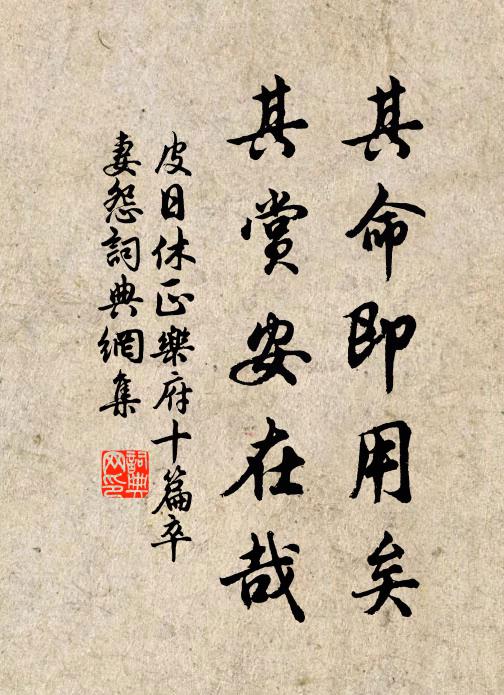 其命即用矣
其賞安在哉
皮日休正樂府十篇卒
妻怨詞典網集
詞典網印